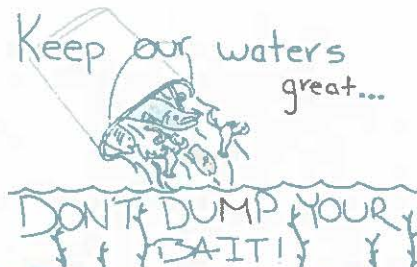 Keep our waters
great...
DON'T DUMP YOUR
BAIT!